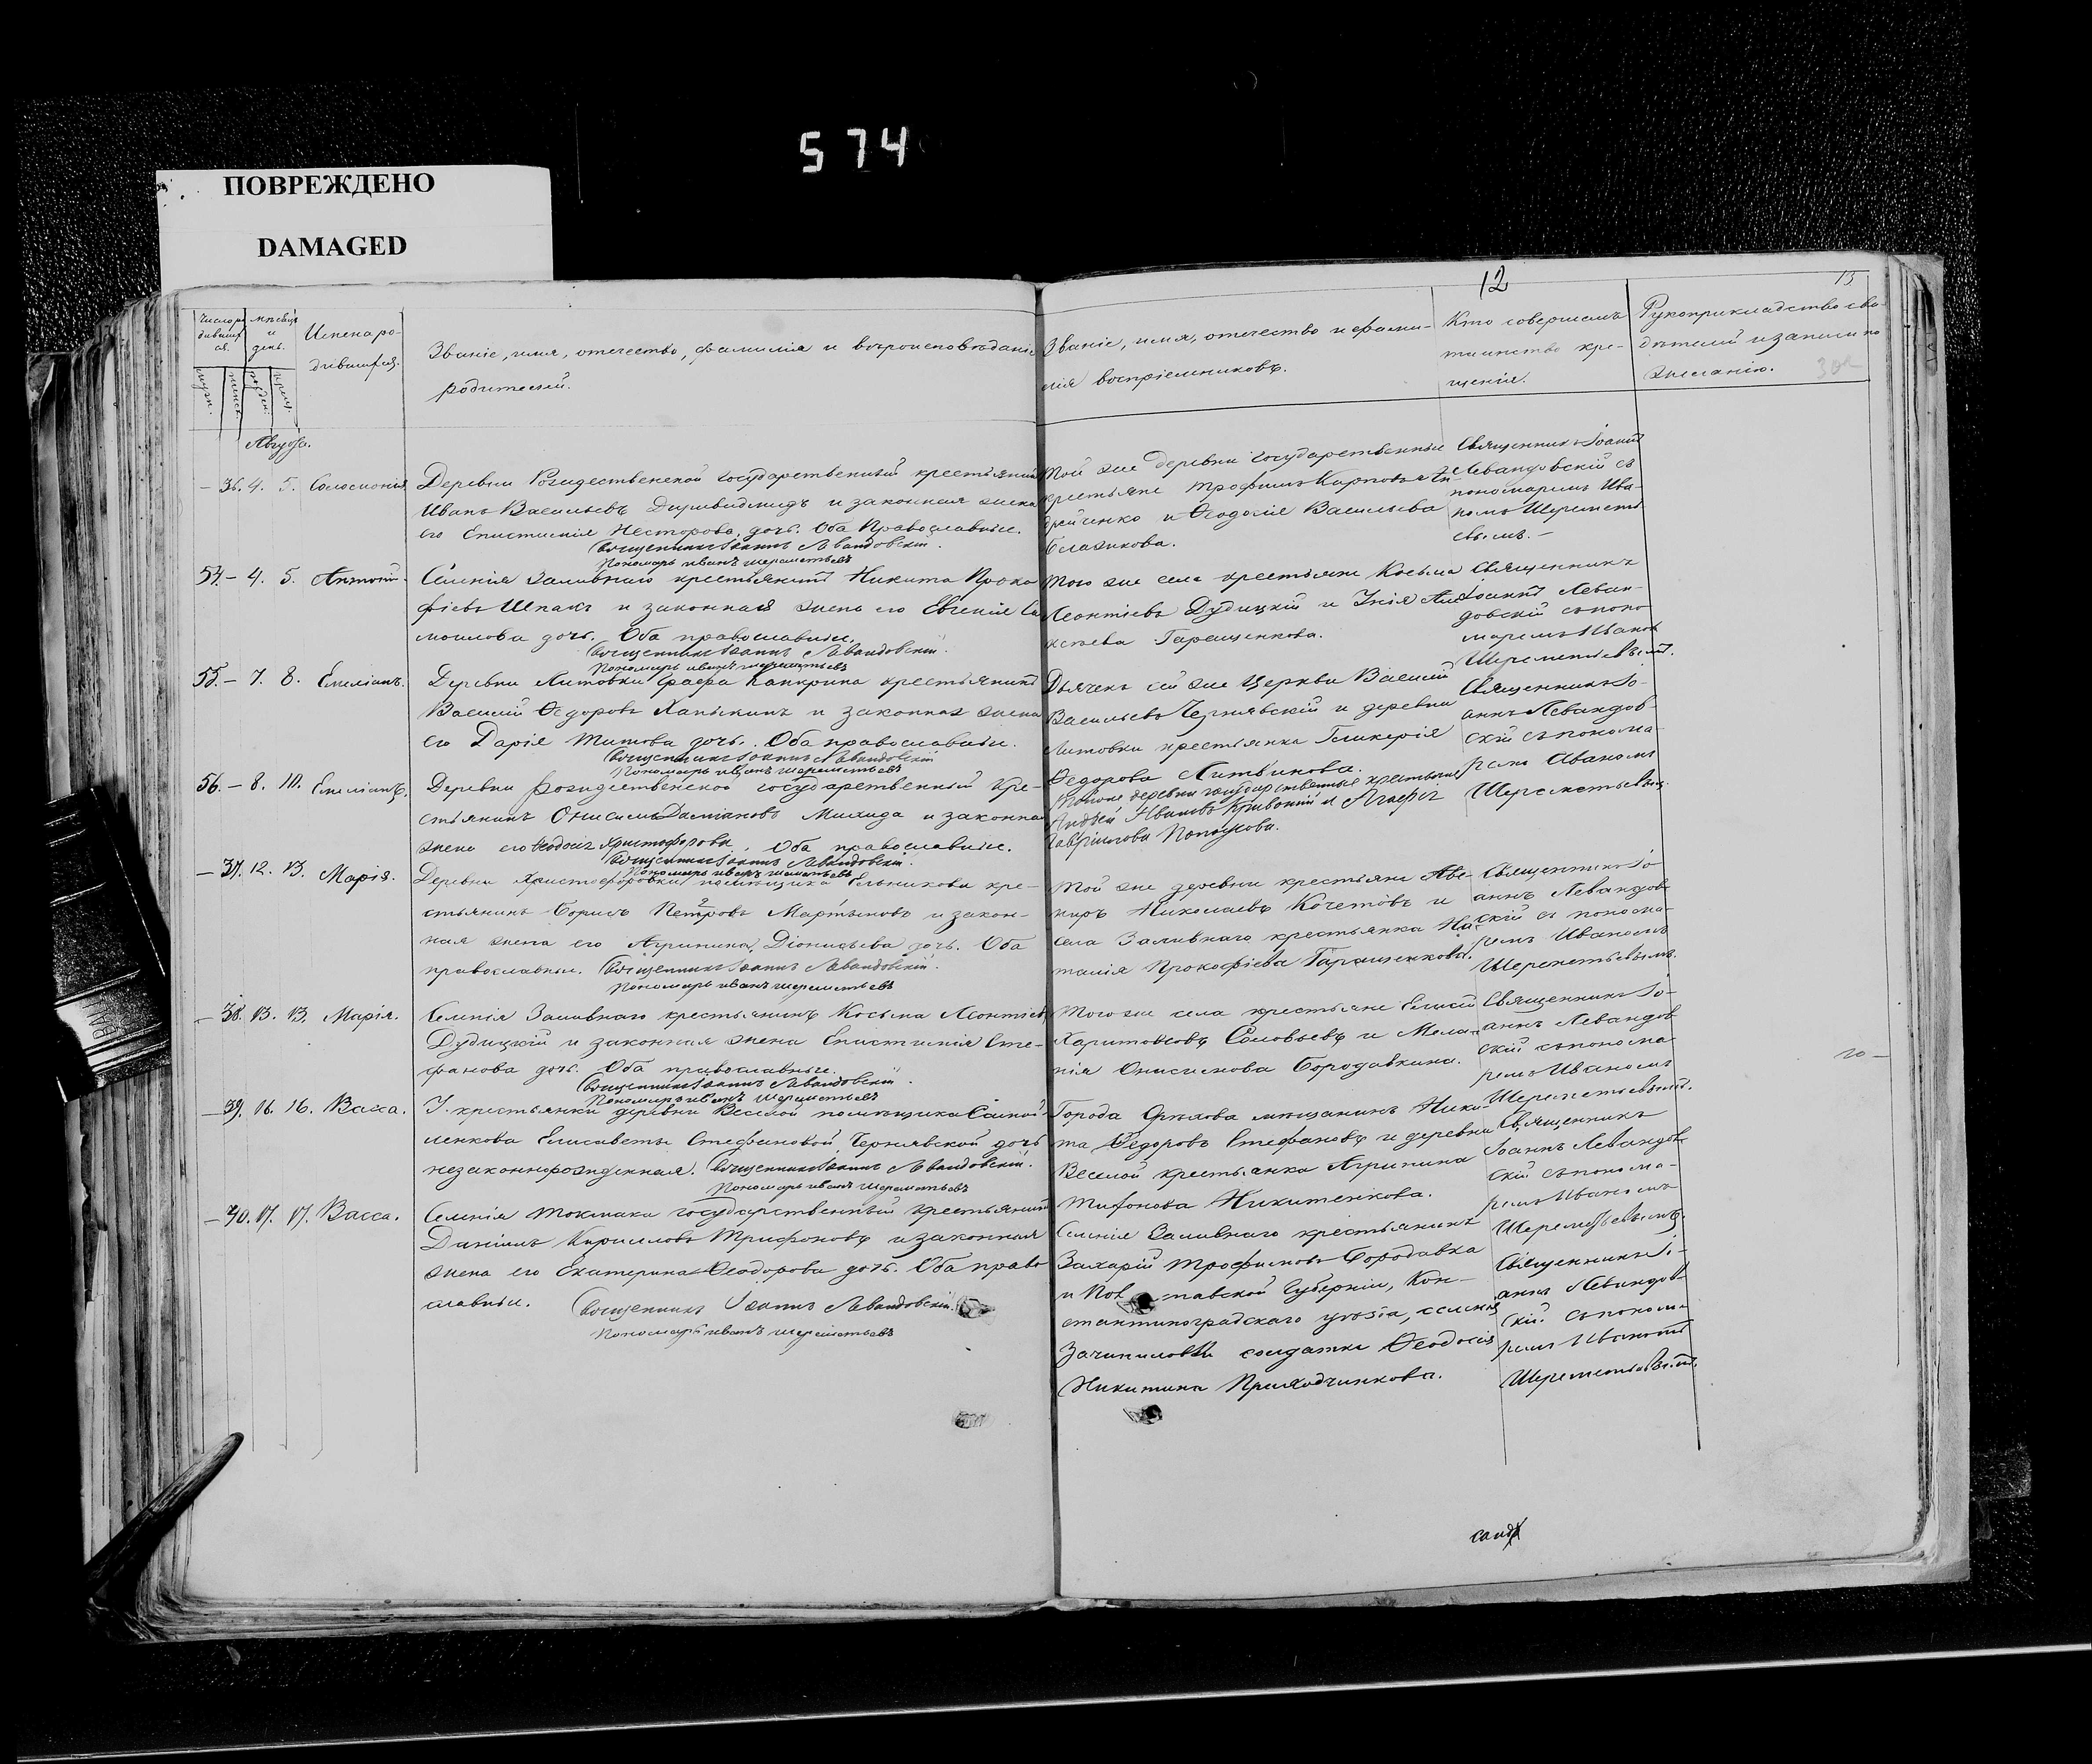 574
ПОВРЕЖДЕНО
DAMAGED
12
13
Число ро
дивших
ся.
Мѣсяцъ
и
день.
Имена ро-
дившихся.
Званіе, имя, отечество, фамилія и вѣроисповѣданіе
родителей.
Званіе, имя, отечество и фами-
лія воспріемниковъ.
Кто совершалъ
таинство кре-
щенія.
Рукоприкладство сви-
дѣтелей и записи по
желанію.
Августъ.
– 36. 4. 5. Соломонія
Деревни Рождественской государственный крестьянинъ
Иванъ Васильевъ и законная жена
его Епистимія Несторова дочь. Оба Православные.
Священникъ Іоаннъ Левандовскій.
Пономарь Иванъ Шереметьевъ
Той же деревни государственные
крестьяне Трофимъ Карповъ Ан-
дрейченко и Ѳеодосія Васильева
Священникъ Іоаннъ
Левандовскій съ
пономаремъ Ива-
номъ Шереметь
евымъ. –
54. – 4. 5. Антоній.
Селенія Заливнаго крестьянинъ Никита Проко
фіевъ Шпакъ и законная жена его Евгенія Са
моилова дочь. Оба православные.
Священникъ Іоаннъ Левандовскій.
Пономарь Иванъ Шереметьевъ
Того же села крестьяне Косьма
Леонтіевъ Дудицкій и
Геращенкова.
Священникъ
Іоаннъ Леван-
довскій съ поно
маремъ Иваном
Шереметьевымъ.
55. – 7. 8. Емеліанъ.
Деревни Литовки графа Канкрина крестьянинъ
Василій Ѳедоровъ Хапылинъ и законная жена
его Дарія Титова дочь. Оба православные.
Священникъ Іоаннъ Левандовскій
Пономарь Иванъ Шереметьевъ
Дьячекъ сей же Церкви Василій
Васильевъ Чернявскій и деревни
Литовки крестьянка Гликерія
Ѳедорова Литвинова.
Священникъ Іо-
аннъ Левандов-
скій съ понома-
ремъ Иваномъ
Шереметьевымъ.
56. – 8. 10. Емеліанъ.
Деревни Рождественской государственный кре-
стьянинъ Онисимъ Даміановъ и законная
жена его Ѳеодосія Христофорова. Оба православные.
Священникъ Іоаннъ Левандовскій.
Пономарь Иванъ Шереметьевъ
деревни государственные крестьяне
Андрей Ивановъ и Агафія
Гавріилова
– 37. 12. 13. Марія.
Деревни Христофоровки помѣщика Ельникова кре-
стьянинъ Борисъ Петровъ Мартыновъ и закон-
ная жена его Агрипина Діонисьева дочь. Оба
православные. Священникъ Іоаннъ Левандовскій.
Пономарь Иванъ Шереметьевъ
Той же деревни крестьяне Аве-
ниръ Николаевъ Кочетовъ и
села Заливнаго крестьянка На-
талія Прокофіева Геращенкова.
Священникъ Іо
аннъ Левандов
скій съ понома-
ремъ Иваномъ
Шереметьевымъ.
– 38. 13. 13. Марія.
Селенія Заливнаго крестьянинъ Косьма Леонтіевъ
Дудицкій и законная жена Епистимія Сте-
фанова дочь. Оба православные.
Священникъ Іоаннъ Левандовскій.
Пономарь Иванъ Шереметьевъ
Того же села крестьяне Елисей
Харитоновъ Соловьевъ и Мела-
нія Онисимова Бородавкина.
Священникъ Іо-
аннъ Левандов
скій съ понома
ремъ Иваномъ
Шереметьевымъ.
– 39. 16. 16. Васса.
У крестьянки деревни Веселой помѣщика Самой-
ленкова Елисаветы Стефановой Чернявской дочь
незаконнорожденная. Священникъ Іоаннъ Левандовскій.
Пономарь Иванъ Шереметьевъ
Города Орѣхова мѣщанинъ Ники-
та Ѳедоровъ Стефановъ и деревни
Веселой крестьянка Агрипина
Никитенкова.
Священникъ
Іоаннъ Левандов
скій съ понома-
ремъ Иваномъ
Шереметьевымъ.
– 40. 17. 17. Васса.
Селенія Токмака государственный крестьянинъ
Даніилъ Кирилловъ Трифоновъ и законная
жена его Екатерина Ѳеодорова дочь. Оба право
славные. Священникъ Іоаннъ Левандовскій.
Пономарь Иванъ Шереметьевъ
Селенія Заливнаго крестьянинъ
Захарій Трофимовъ Бородавка
и Пол тавской Губерніи, Кон-
стантиноградскаго уѣзда, селенія
Зачипиловки солдатка Ѳеодосія
Никитина Приходчинкова.
Священникъ І-
аннъ Левандов-
скій съ поном
ремъ Иваномъ
Шереметьевымъ.